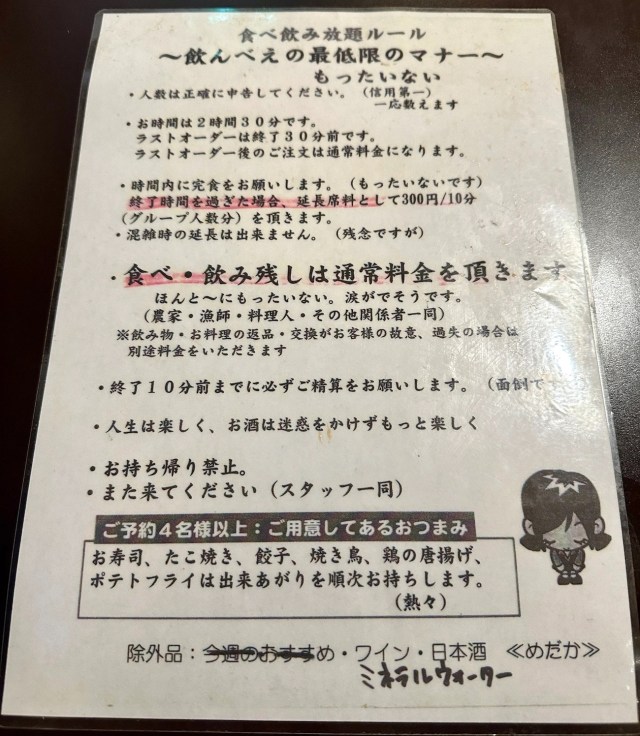 食べ飲み放題ルール
～飲んべえの最低限のマナー～
もったいない
・人数は正確に申告してください。（信用第一）
一応数えます
・お時間は２時間３０分です。
ラストオーダーは終了３０分前です。
ラストオーダー後のご注文は通常料金になります。
・時間内に完食をお願いします。（もったいないです）
終了時間を過ぎた場合、延長席料として300円/10分
（グループ人数分）を頂きます。
・混雑時の延長は出来ません。（残念ですが）
・食べ・飲み残しは通常料金を頂きます
ほんと～にもったいない。涙がでそうです。
（農家・漁師・料理人・その他関係者一同）
※飲み物・お料理の返品・交換がお客様の故意、過失の場合は
別途料金をいただきます
・終了１０分前までに必ずご精算をお願いします。（面倒で
・人生は楽しく、お酒は迷惑をかけずもっと楽しく
・お持ち帰り禁止。
・また来てください（スタッフ一同）
ご予約４名様以上：ご用意してあるおつまみ
お寿司、たこ焼き、餃子、焼き鳥、鶏の唐揚げ、
ポテトフライは出来あがりを順次お持ちします。
（熱々）
除外品：今週のおすすめ・ワイン・日本酒　≪めだか≫
ミネラルウォーター